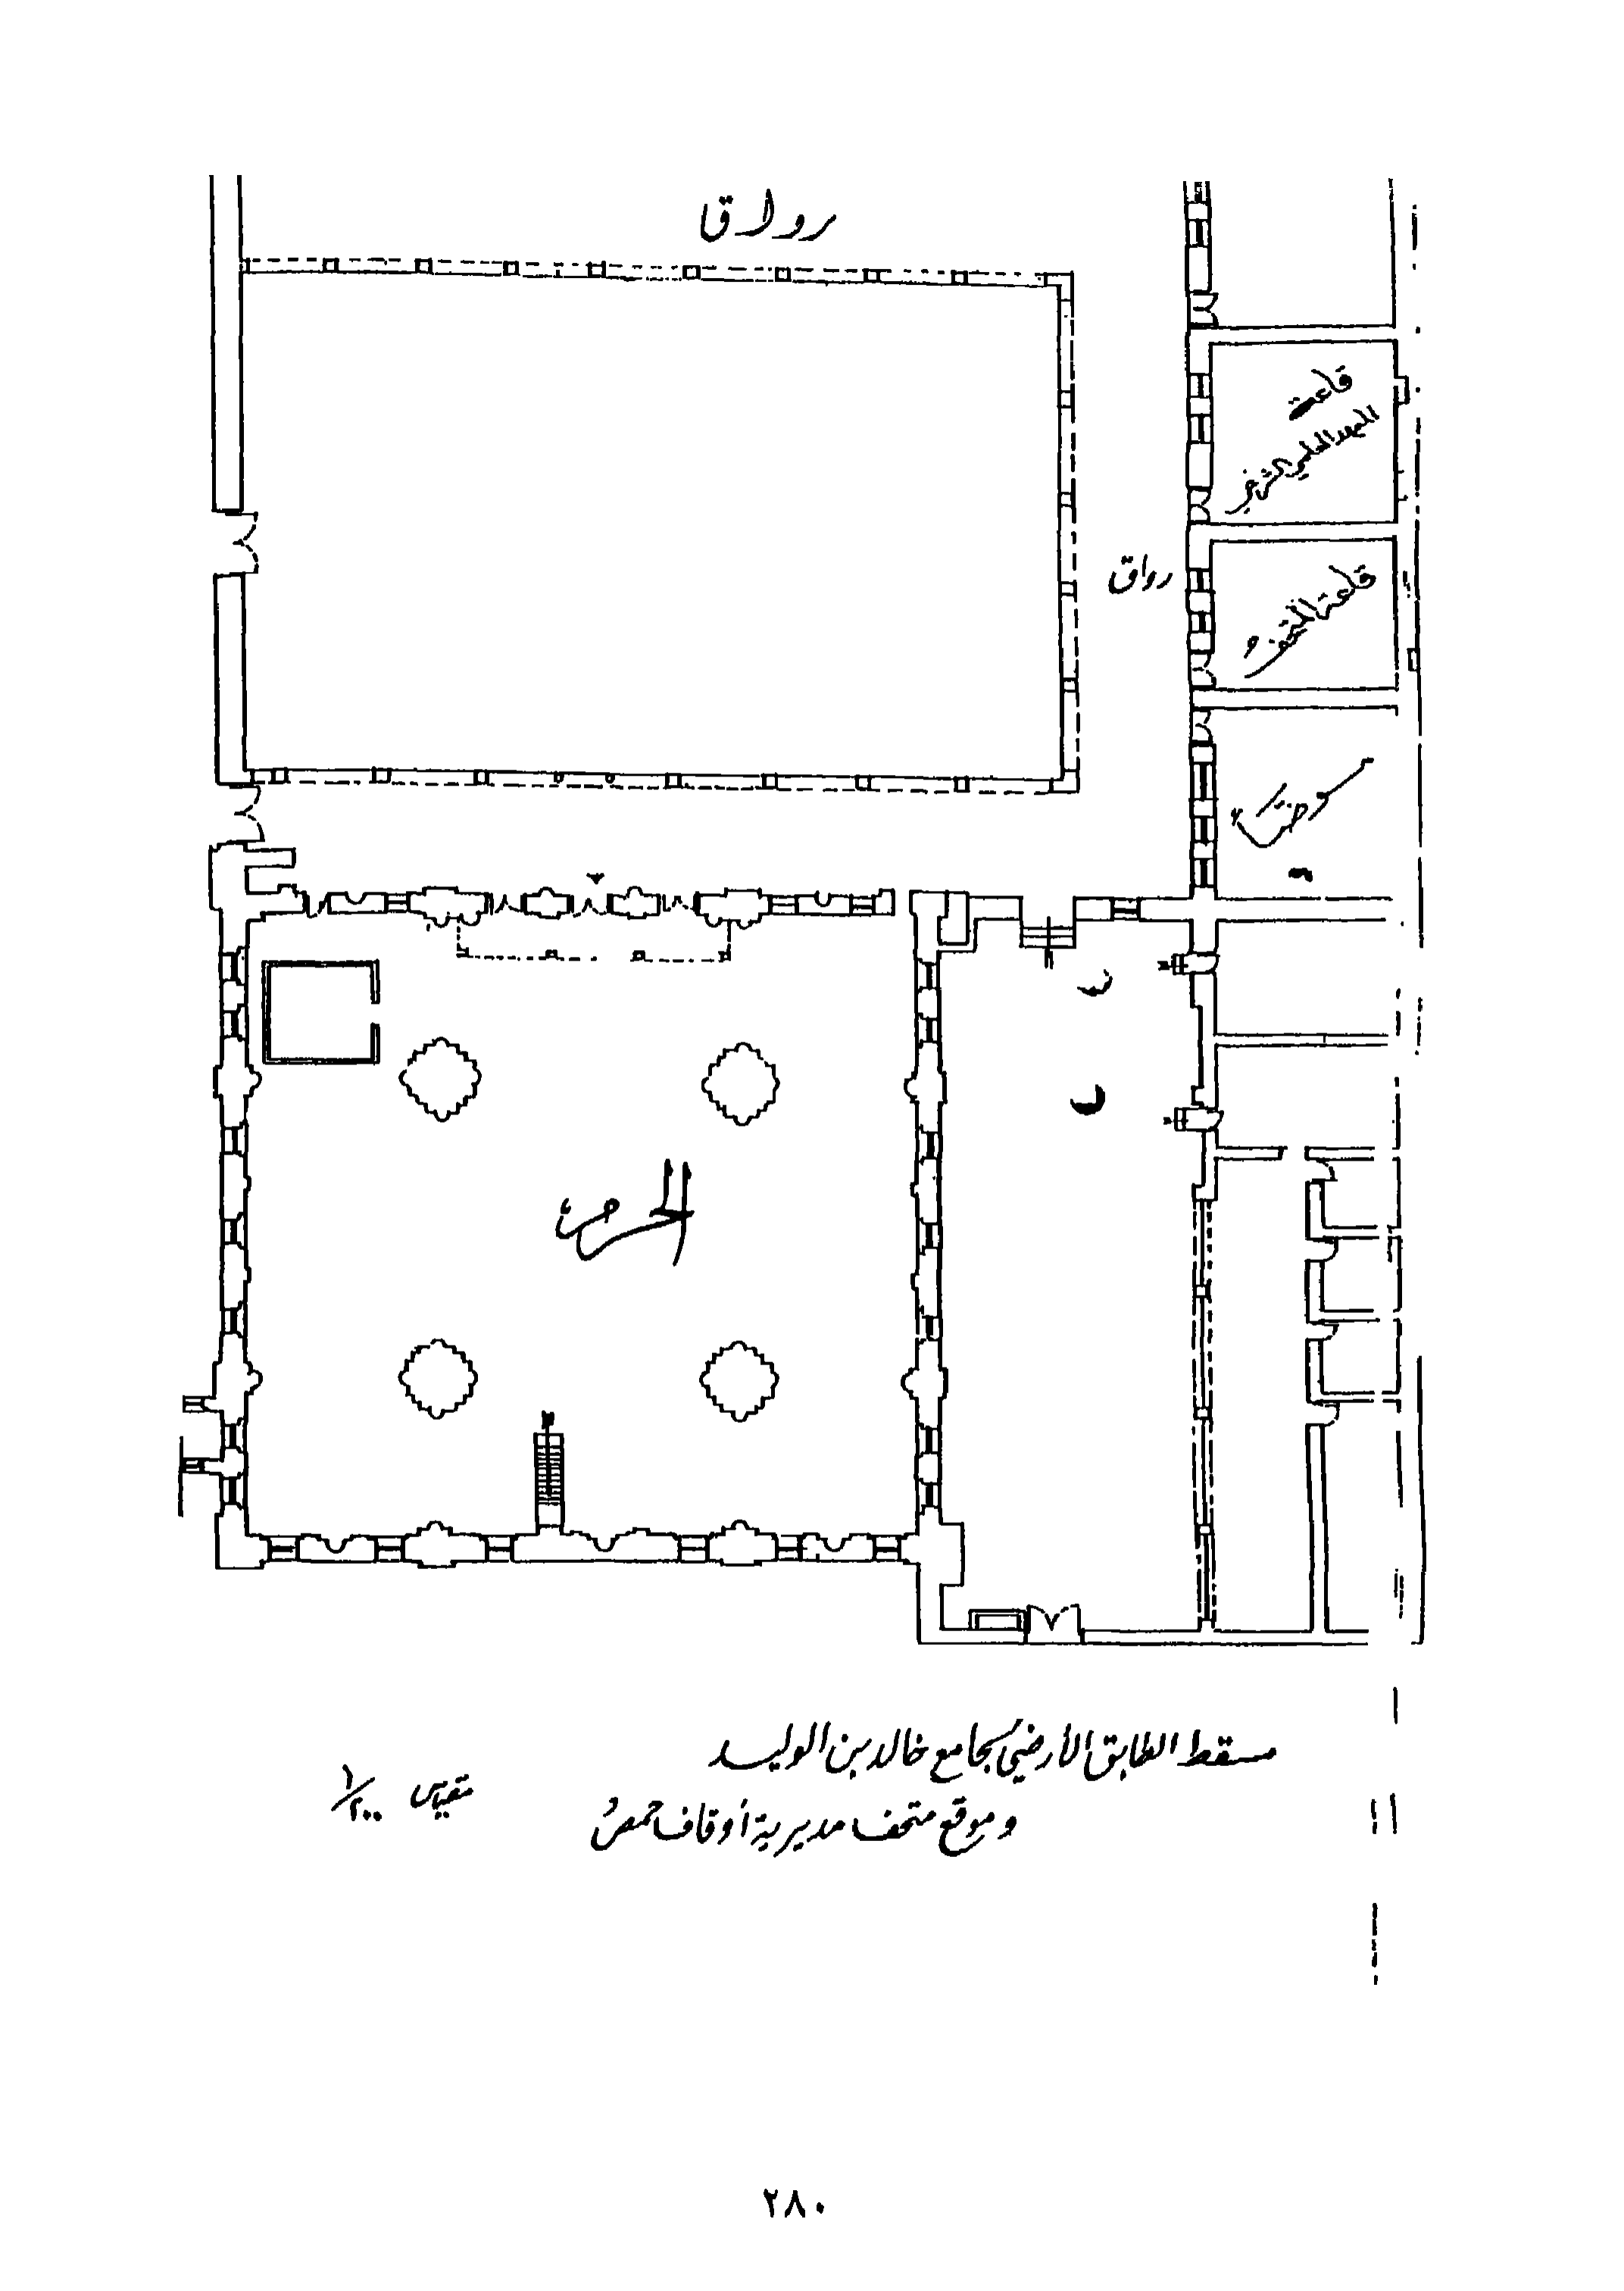 رواق
قاعة
المعهد العلمي الشرعي
رواق
قاعة المتحف
الحرم
مسقط الطابق الأرضي لجامع خالد بن الوليد
وموقع متحف مديرية أوقاف حمص
مقياس ١/٢٠٠
٢٨٠